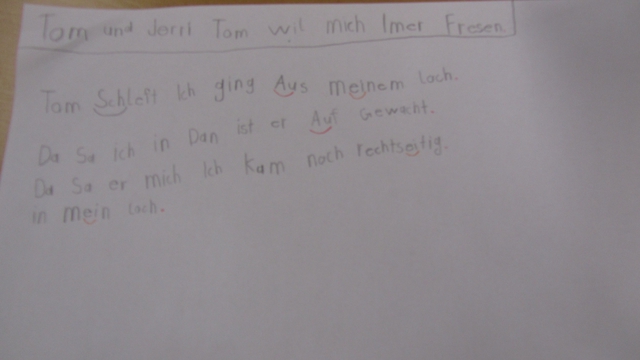 Tom und Jerri Tom wil mich Imer Fresen
Tom Schleft Ich ging Aus meinem Loch.
Da Sa ich in Dan ist er Auf Gewacht.
Da Sa er mich Ich Kam noch rechtseitig.
in mein Loch.